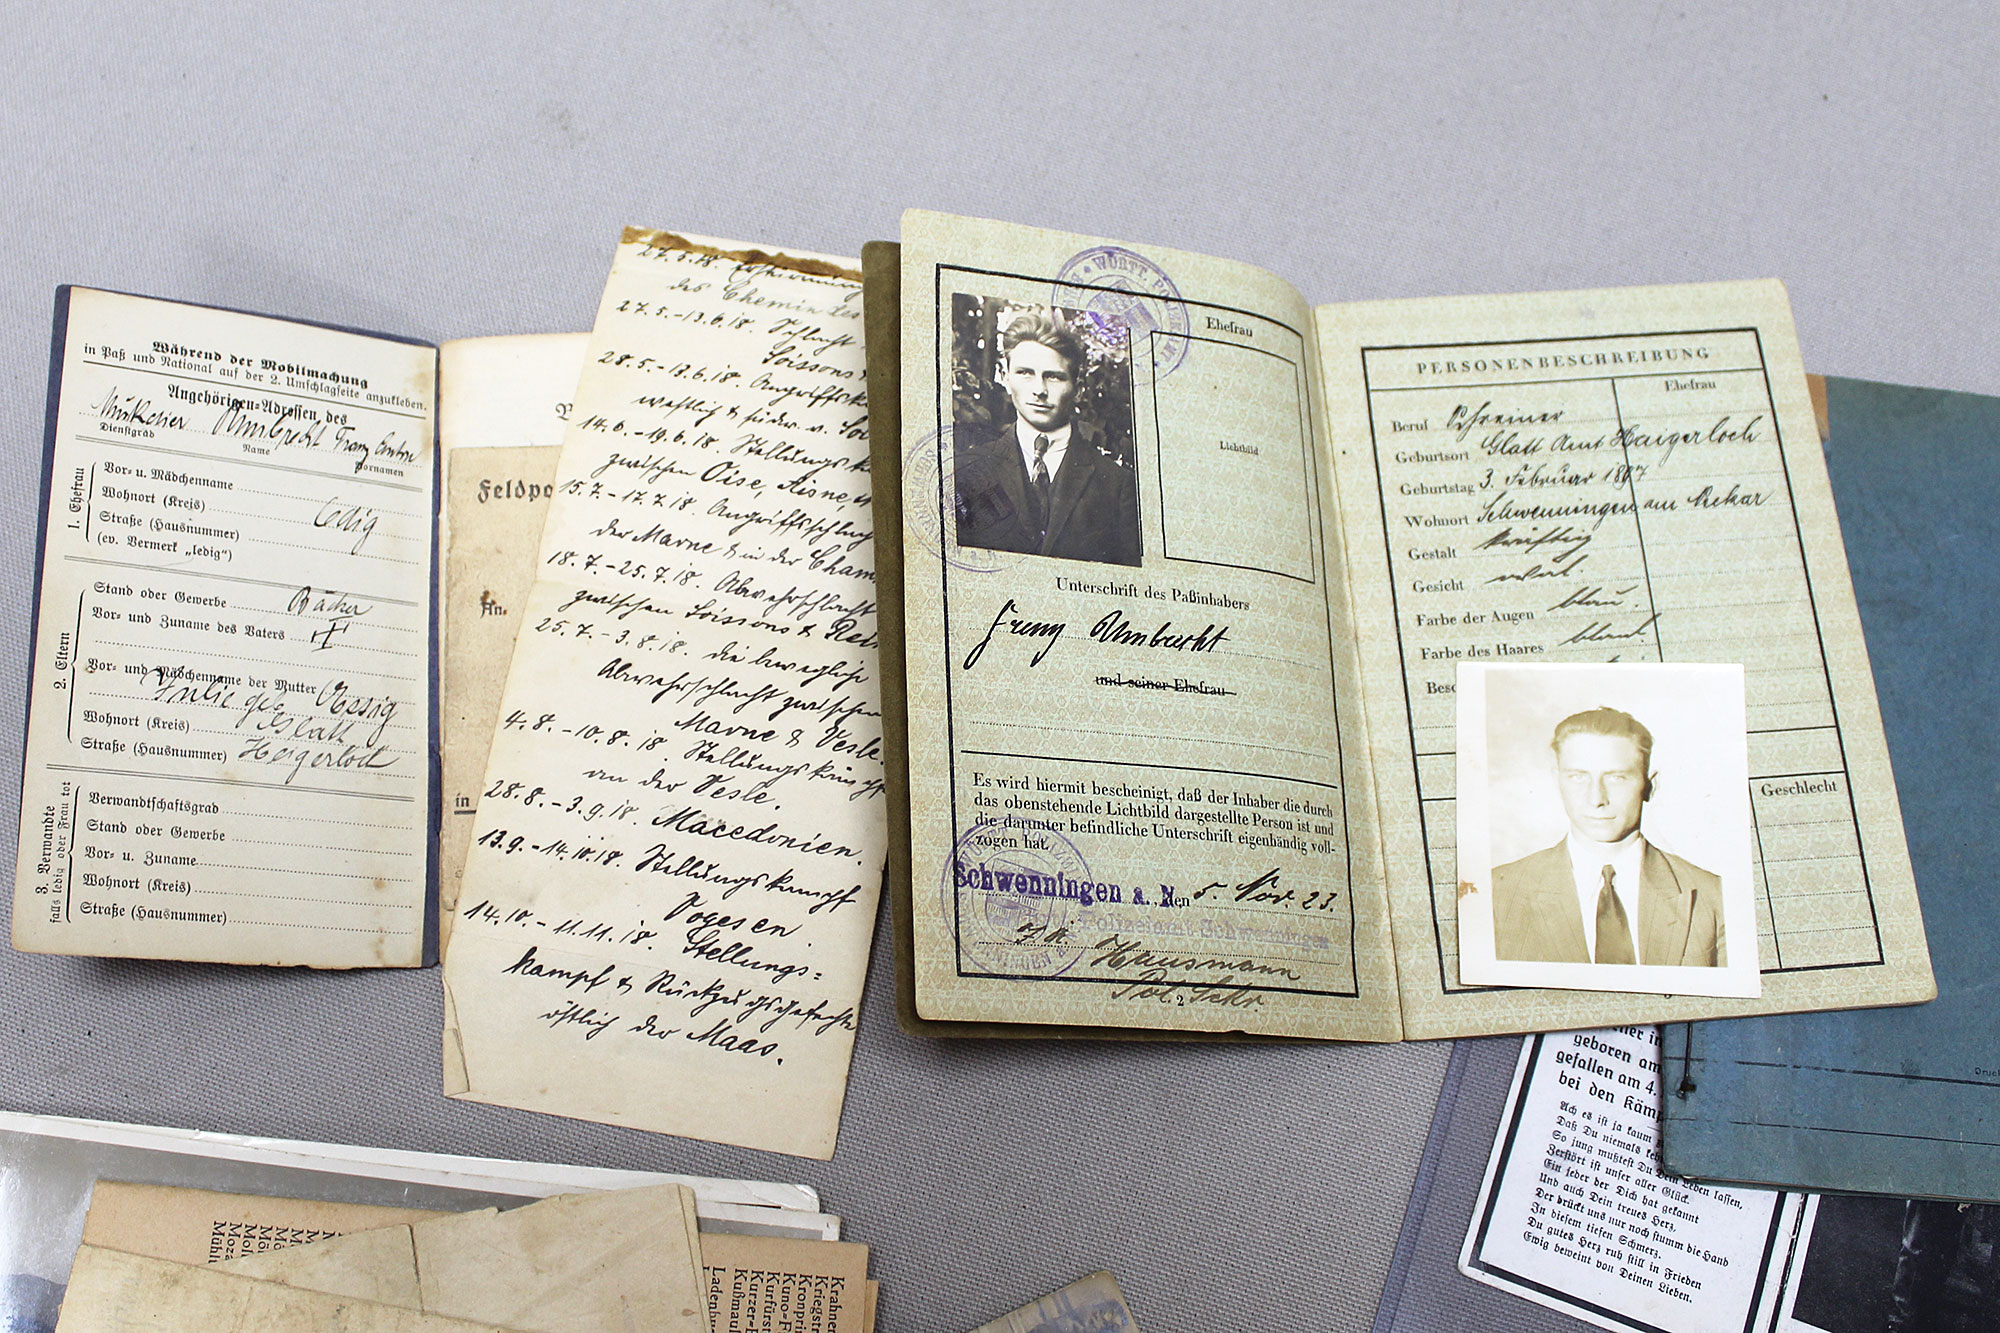 Während der Mobilmachung
in Paß und National auf der 2. Umschlagseite anzukleben.
Angehörigen-Adressen des
Musketier Umbrecht Franz Anton
Dienstgrad Name Vornamen
1. Ehefrau
Vor- u. Mädchenname
Wohnort (Kreis)
Straße (Hausnummer)
(ev. Vermerk „ledig")
ledig
2. Eltern
Stand oder Gewerbe Bäcker
Vor- und Zuname des Vaters
Vor- und Mädchenname der Mutter
Julie geb
Wohnort (Kreis) Glatt
Straße (Hausnummer) Heigerloch
3. Verwandte
falls ledig oder Frau tot
Verwandtschaftsgrad
Stand oder Gewerbe
Vor- u. Zuname
Wohnort (Kreis)
Straße (Hausnummer)
Feldpo
An.
in
27.5.18. Erstürmung
des Chemin des
27.5.-13.6.18. Schlacht
Soissons
28.5.-13.6.18. Angriffs
westlich & südw. v. Soi
14.6.-19.6.18. Stellungsk
zwischen Oise, Aisne,
15.7.-17.7.18. Angriffsschlach
der Marne & in der Cham
18.7.-25.7.18. Abwehrschlacht
zwischen Soissons & Rei
25.7.-3.8.18. die bewegliche
Abwehrschlacht zwischen
Marne & Vesle.
4.8.-10.8.18. Stellungskampf
an der Vesle.
28.8.-3.9.18. Macedonien.
13.9.-14.10.18. Stellungskampf
Vogesen.
14.10.-11.11.18. Stellungs=
kampf & Rückzugsgefechte
östlich der Maas.
WÜRTT. POL
Ehefrau
Lichtbild
Unterschrift des Paßinhabers
Franz Umbrecht
und seiner Ehefrau
Es wird hiermit bescheinigt, daß der Inhaber die durch
das obenstehende Lichtbild dargestellte Person ist und
die darunter befindliche Unterschrift eigenhändig voll-
zogen hat.
Schwenningen a. N., den 5. Nov. 23.
Polizeiamt Schwenningen
Hausmann
Pol. Sekr.
2
PERSONENBESCHREIBUNG
Ehefrau
Beruf Schreiner
Geburtsort Glatt Amt Haigerloch
Geburtstag 3. Februar 1897
Wohnort Schwenningen am Neckar
Gestalt kräftig
Gesicht oval.
Farbe der Augen blau.
Farbe des Haares blond.
Besc
Geschlecht
geboren am
gefallen am 4.
bei den Kämp
Ach es ist ja kaum
Daß Du niemals keh
So jung mußtest Du Dein Leben lassen,
Zerstört ist unser aller Glück.
Ein jeder der Dich hat gekannt
Und auch Dein treues Herz,
Der drückt uns nur noch stumm die Hand
In diesem tiefen Schmerz.
Du gutes Herz ruh still in Frieden
Ewig beweint von Deinen Lieben.
Druc
Mo
Mo
Mö
Möl
Mol
Moza
Mühl
Krahnen
Kriegstr
Kronprin
Kuno-F
Kurfürst
Kurzer-
Kußmaul
Ladenbu